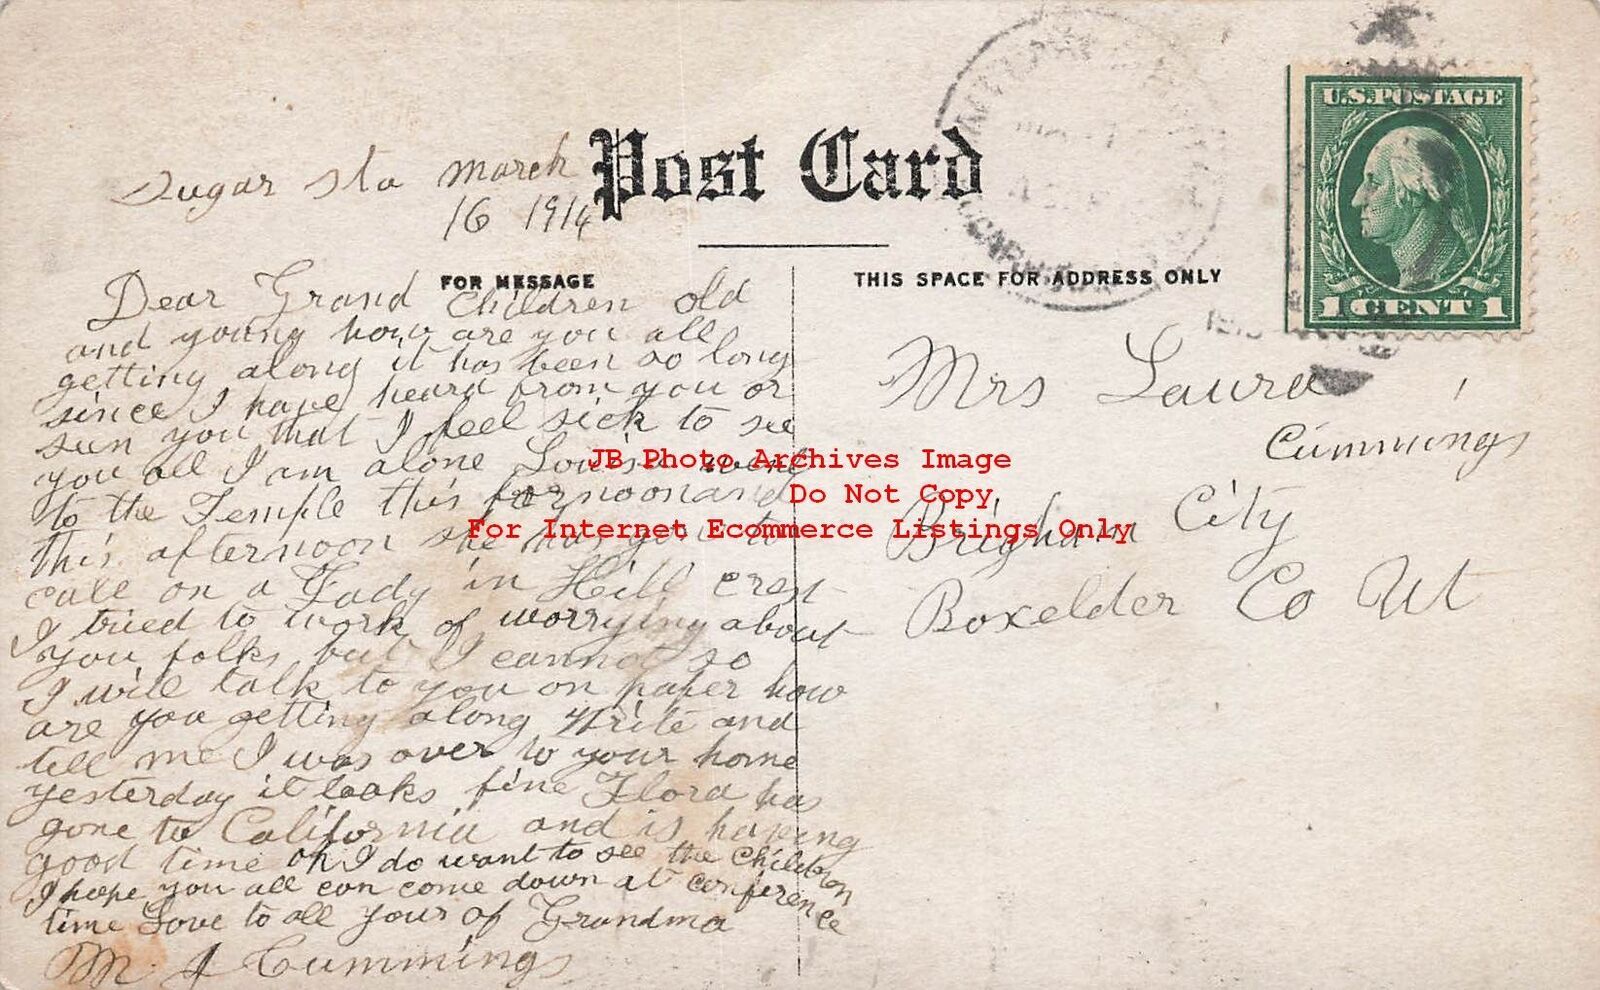 Sugar Sta March
16 1914
Post Card
U.S. POSTAGE
1 CENT 1
FOR MESSAGE
THIS SPACE FOR ADDRESS ONLY
Dear Grand Children old
and young how are you all
getting along it has been so long
since I have heard from you or
seen you that I feel sick to see
you all I am alone Louise went
to the Temple this fornoon and
this afternoon she has gone to
call on a Lady in Hill crest
I tried to work of worrying about
you folks but I cannot so
I will talk to you on paper how
are you getting along write and
tell me I was over to your home
yesterday it looks fine Flora has
gone to California and is haveing
good time oh I do want to see the Children
I hope you all can come down at conference
time Love to all yours of Grandma
M J Cummings
Mrs Laura
Cummings
Brigham City
Boxelder Co Ut
JB Photo Archives Image
Do Not Copy
For Internet Ecommerce Listings Only